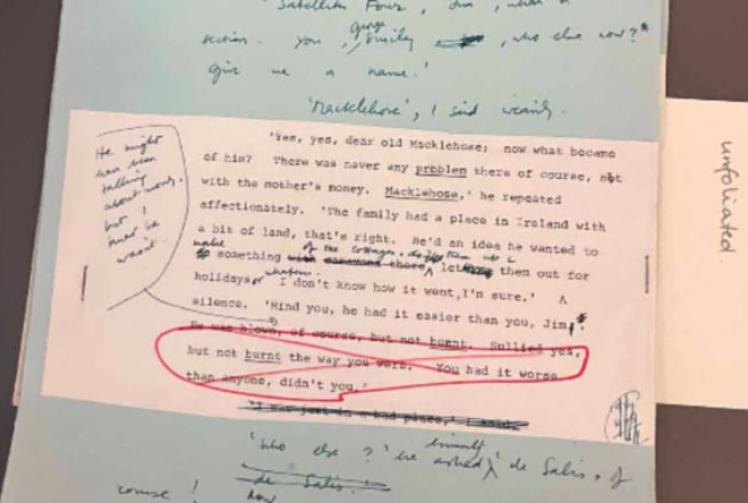 'Satellites Four',
section. You, George Smiley, who else now?"
give me a name.'
'Macklehose', I said wearily.
He might
have been
talking
about money.
but I
must be
wasn't.
'Yes, yes, dear old Macklehose; now what became
of him? There was never any problem there of course, not
with the mother's money. Macklehose,' he repeated
affectionately. 'The family had a place in Ireland with
a bit of land, that's right. He'd an idea he wanted to
make of the cottages, do them up &
something with caravans there, let them out for
holidays or whatever. I don't know how it went, I'm sure.' A
silence. 'Mind you, he had it easier than you, Jim.
He was blown, of course, but not burnt. Sullied yes,
but not burnt the way you were. You had it worse
than anyone, didn't you.'
'I was just in a bad place,' I said.
'Who else?' he asked himself, 'de Salis, of
de Salis.'
course! now
unfoliated.